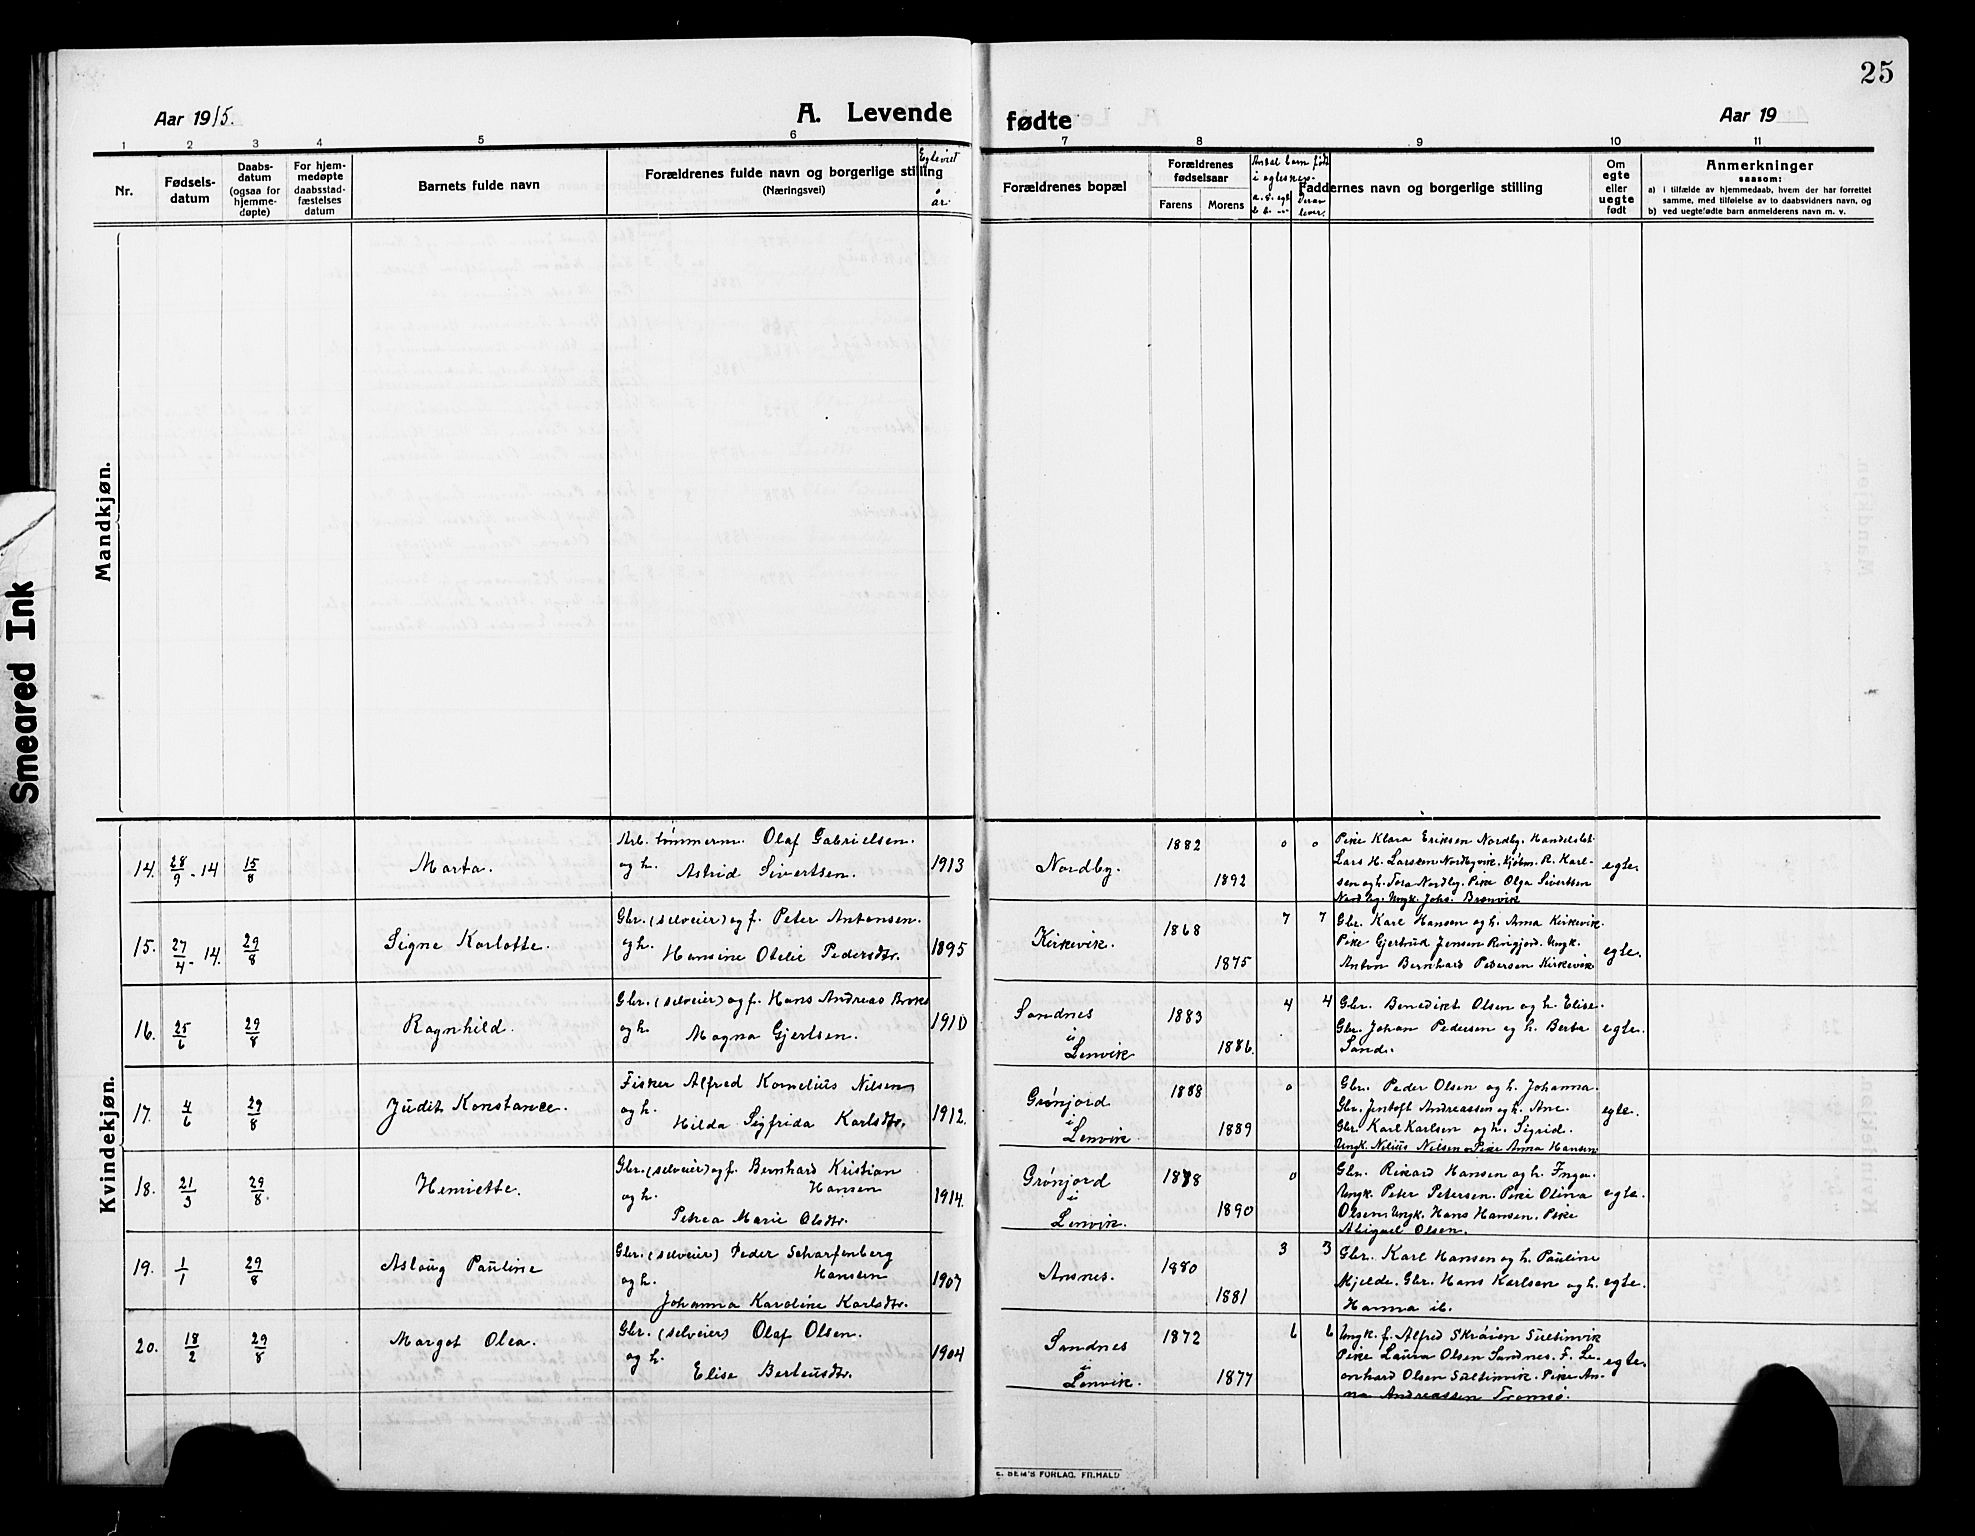 25
Aar 1915.
A. Levende
fødte
Aar 19
1 2 3 4 5 6 7 8 9 10 11
Nr.
Fødsels-
datum
Daabs-
datum
(ogsaa for
hjemme-
døpte)
For hjem-
medøpte
daabsstad-
fæstelses
datum
Barnets fulde navn
Forældrenes fulde navn og borgerlige stilling
(Næringsvei)
Egteviet
år.
Forældrenes bopæl
Forældrenes
fødselsaar
Farens
Morens
Antal barn født
i egteskap
Derav
lever.
Faddernes navn og borgerlige stilling
Om
egte
eller
uegte
født
Anmerkninger
saasom:
a) i tilfælde av hjemmedaab, hvem der har forrettet
samme, med tilføielse av to daabsvidners navn, og
b) ved uegtefødte barn anmelderens navn m. v.
Mandkjøn.
Smeared Ink
Kvindekjøn.
14. 28/9 - 14 15/8 Marta.
Arb. tømmerm. Olaf Gabrielsen.
og h. Astrid Sivertsen. 1913
Nordby. 1882 1892 0 0
Pike Klara Eriksen Nordby. Handelsbet.
Lars H. Larsen Nordbyvik. Kjøbm. R. Karl-
sen og h. Tora Nordby. Pike Olga Sivertsen
Nordby. Ungk. Johs. Brenvik
egte.
15. 27/4 - 14. 29/8 Signe Karlotte.
Gbr. (selveier) og f. Peter Antonsen.
og h. Hansine Otelie Pedersdtr. 1895
Kirkevik. 1868 1875 7 7
Gbr. Karl Hansen og h. Anna Kirkevik.
Pike Gjertrud Jensen Rossfjord. Ungk.
Anton Bernhard Pedersen Kirkevik
egte.
16. 25/6 29/8 Ragnhild.
Gbr. (selveier) og f. Hans Andreas Boks
og h. Magna Gjertsen. 1910
Sandnes
i
Lenvik 1883 1886. 4 4
Gbr. Benedikt Olsen og h. Elise.
Gbr. Johan Pedersen og h. Berta
Sand.
egte.
17. 4/6 29/8 Judit Konstance.
Fisker Alfred Kornelius Nilsen
og h.
Hilda Sigfrida Karlsdtr. 1912.
Grønjord
i
Lenvik 1888 1889 0
Gbr. Peder Olsen og h. Johanna.
Gbr. Jentoft Andreassen og h. Ane.
Gbr. Karl Karlsen og h. Sigrid.
Ungk. Nilius Nilsen. Pike Anna Hansen
egte.
18. 21/3 29/8. Henriette.
Gbr. (selveier) og f. Bernhard Kristian
og h. Hansen
Petrea Marie Olsdtr. 1914.
Grønjord
i
Lenvik. 1888 1890 0
Gbr. Rikard Hansen og h. Inga.
Ungk. Peter Petersen. Pike Olina
Olsen. Ungk. Hans Hansen. Pike
Abigael Olsen.
egte.
19. 1/1 29/8 Aslaug Pauline
Gbr. (selveier) Peder Scharfenberg
og h. Hansen
Johanna Karoline Karlsdtr. 1907
Ansnes. 1880 1881 3 3
Gbr. Karl Hansen og h. Pauline
Mjelde. Gbr. Hans Karlsen og h.
Hanna ib.
egte.
20. 18/2 29/8 Margot Olea.
Gbr. (selveier) Olaf Olsen.
og h.
Elise Berteusdtr. 1904
Sandnes
i
Lenvik. 1872 1877 6 6
Ungk. f. Alfred Skrøien Sultinvik
Pike Laura Olsen Sandnes. F. Le-
onhard Olsen Sultinvik. Pike An-
na Andreassen Tromsø.
egte.
E. SEM'S FORLAG. FR.HALD